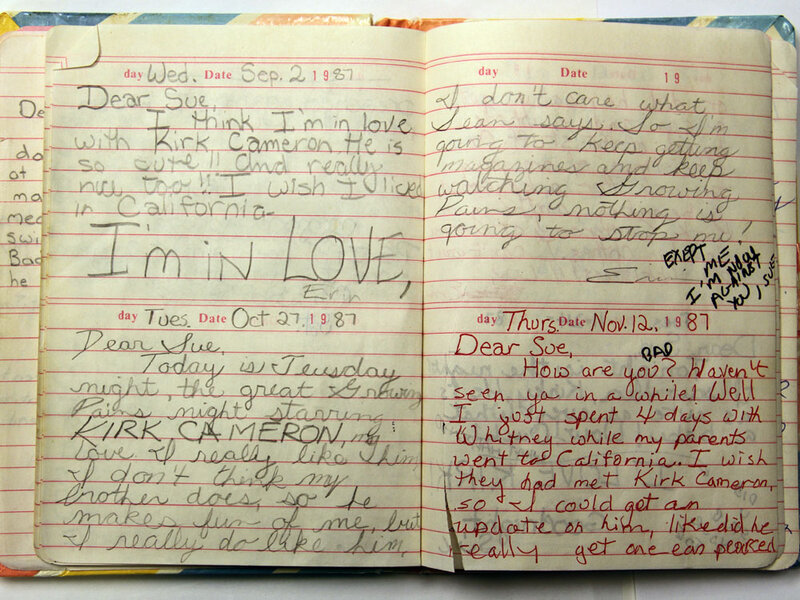 De
do
at
ma
mea
swi
Bac
he
day Wed. Date Sep. 2 1987
Dear Sue,
I think I'm in love
with Kirk Cameron. He is
so cute!! and really
nice too!! I wish I lived
in California-
I'm in LOVE,
Erin
day Tues. Date Oct 27, 1987
Dear Sue,
Today is Teusday
night, the great Growing
Pains night starring
KIRK CAMERON, my
love I really like him,
I don't think my
brother does, so he
makes fun of me, but
I really do like him,
day Date 19
I don't care what
Sean says. So I'm
going to keep getting
magazines and keep
watching Growing
Pains, nothing is
going to stop me!
Erin
EXEPT
ME,
I'M NOW
AGAINST
YOU, SUE
day Thurs. Date Nov. 12, 1987
Dear Sue,
BAD
How are you? Haven't
seen ya in a while! Well
I just spent 4 days with
Whitney while my parents
went to California. I wish
they had met Kirk Cameron,
so I could get an
update on him, like did he
really get one ear pearced